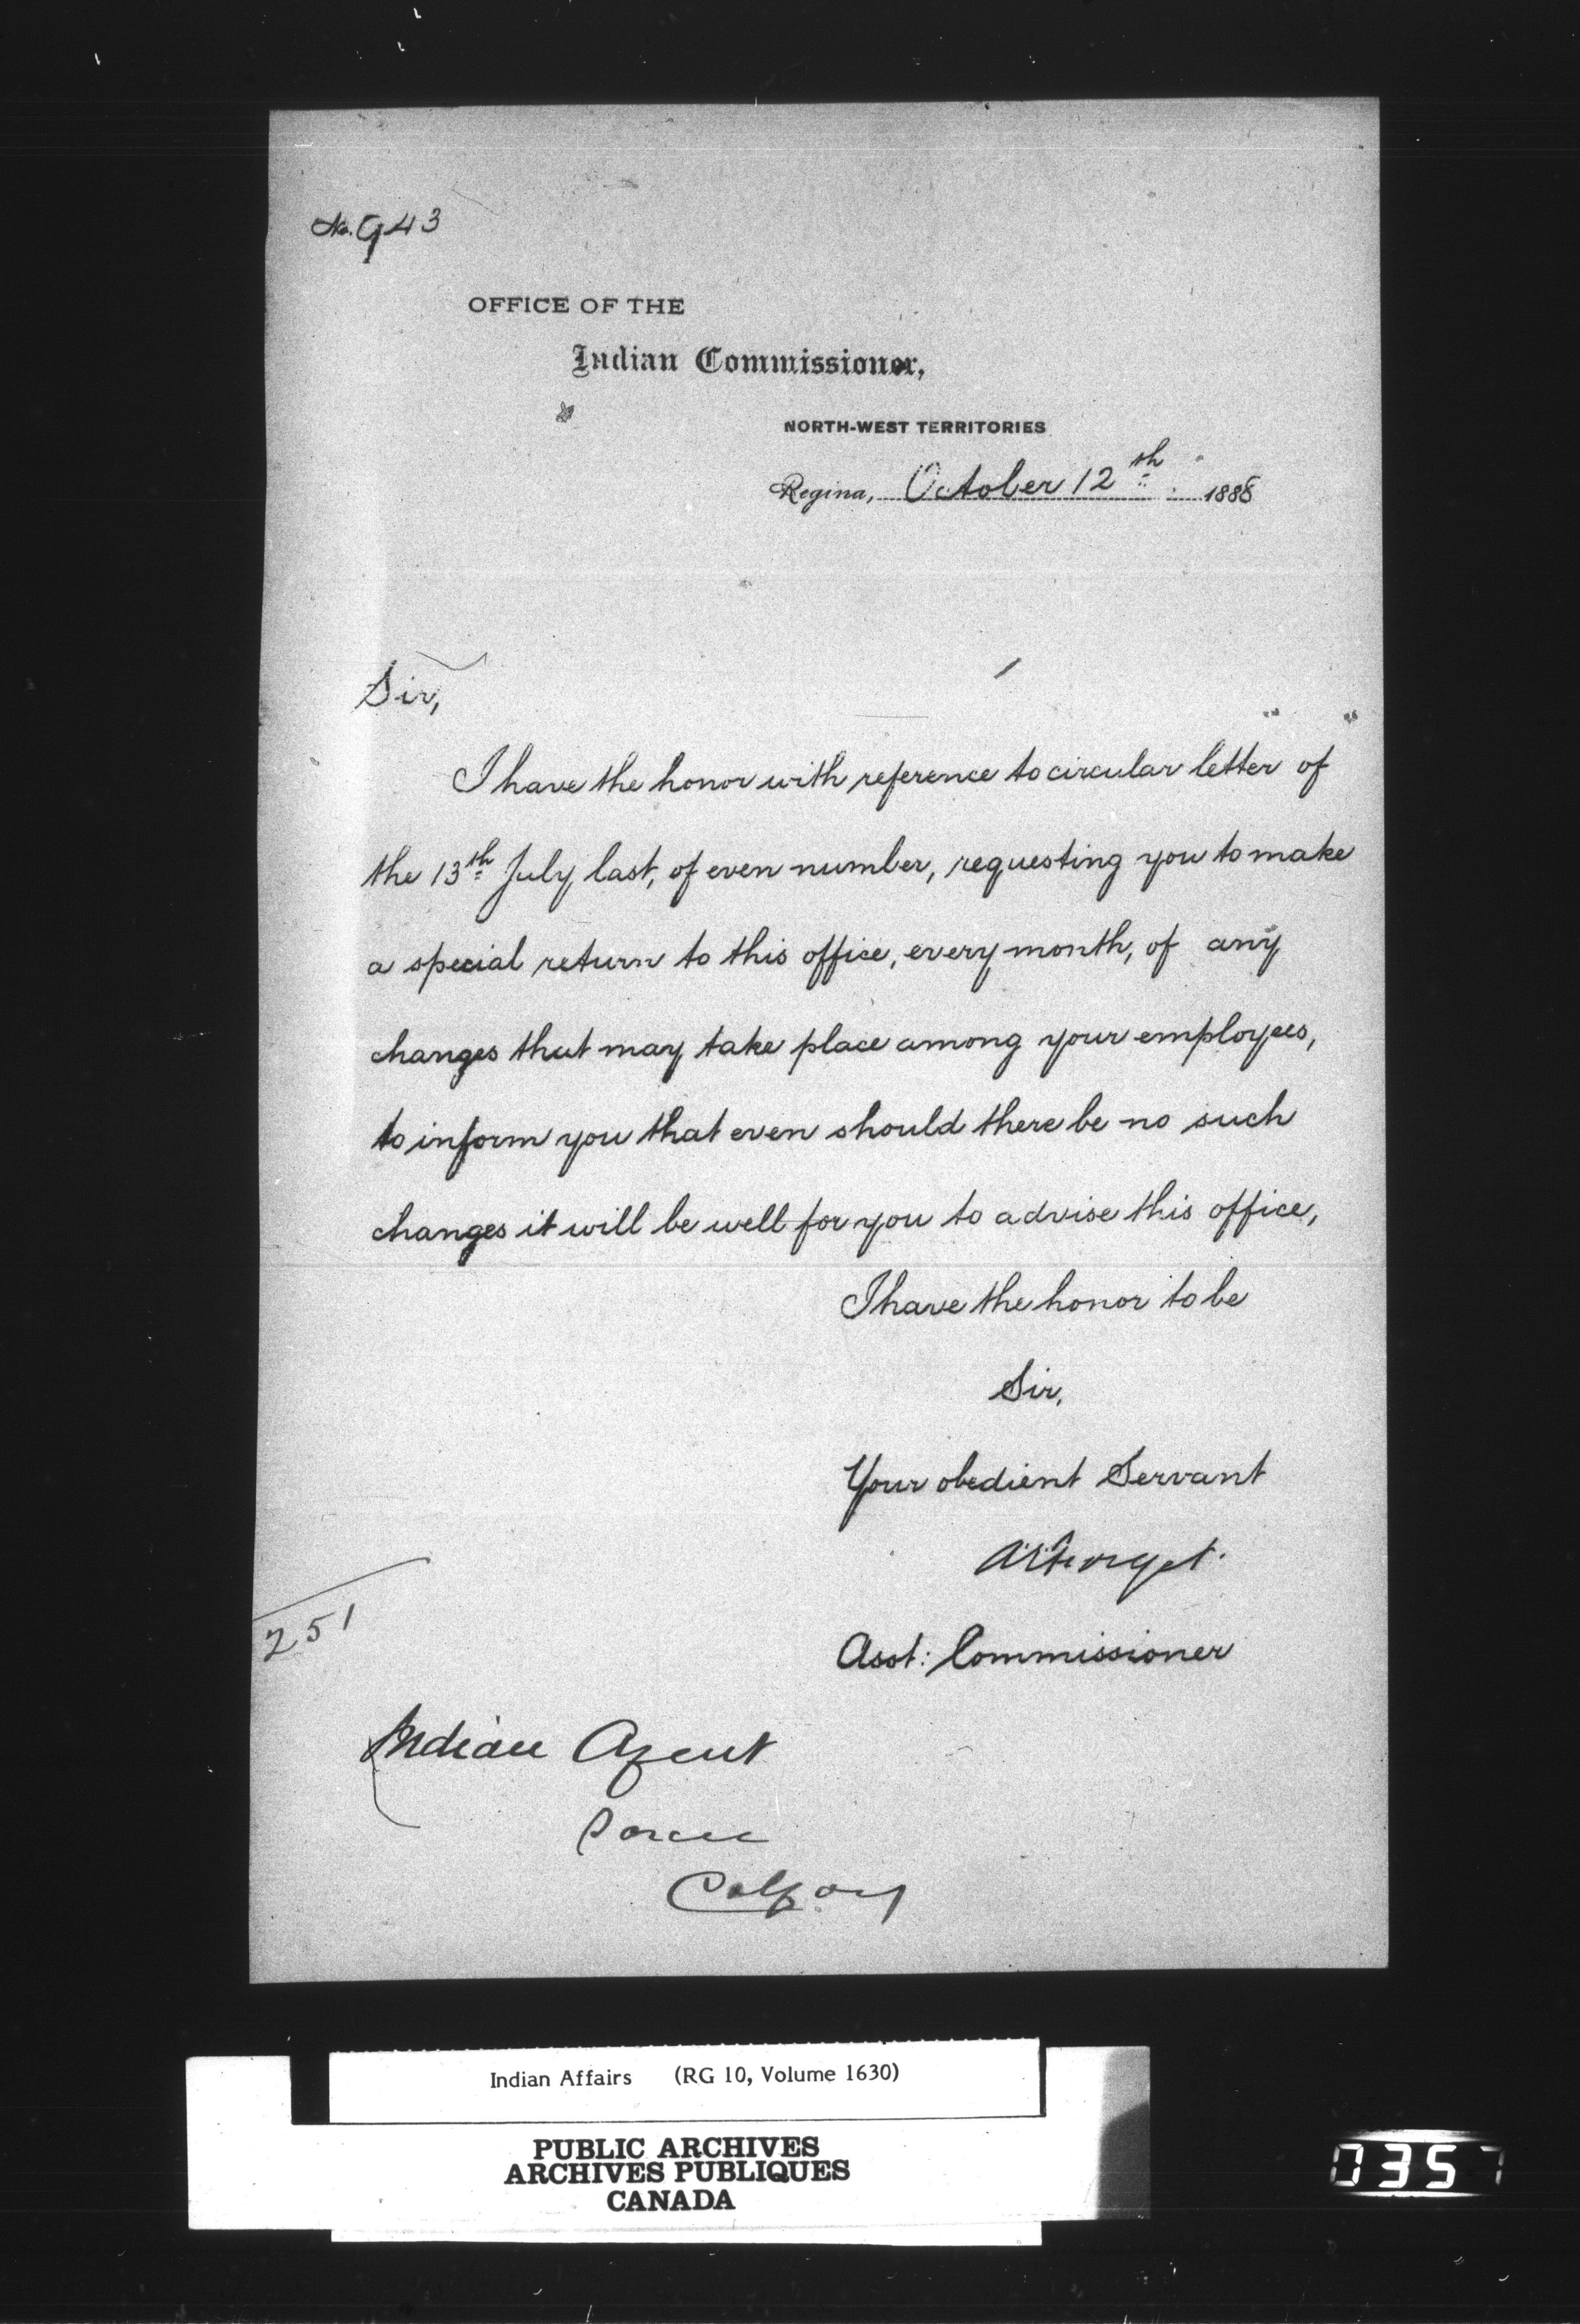 No. 943
OFFICE OF THE
Indian Commissioner,
NORTH-WEST TERRITORIES
Regina, October 12th 1888
Sir,
I have the honor with reference to circular letter of
the 13th July last, of even number, requesting you to make
a special return to this office, every month, of any
changes that may take place among your employees,
to inform you that even should there be no such
changes it will be well for you to advise this office,
I have the honor to be
Sir,
Your obedient Servant
A E Forget.
Asst: Commissioner
251
Indian Agent
Sarcee
Calgary
Indian Affairs (RG 10, Volume 1630)
PUBLIC ARCHIVES
ARCHIVES PUBLIQUES
CANADA
0357